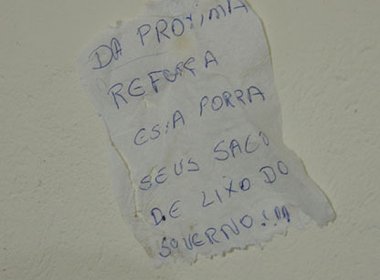 DA PROXIMA
REFORÇA
ESSA PORRA
SEUS SACO
DE LIXO DO
GOVERNO!!!